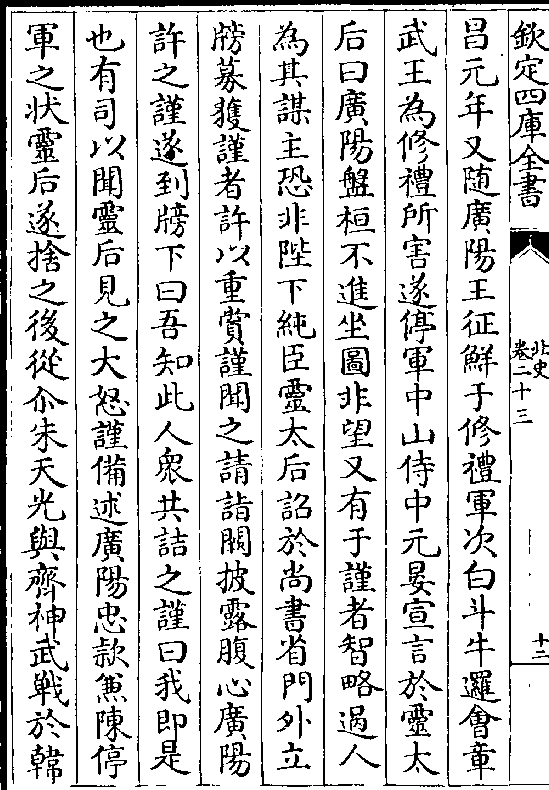 欽定四庫全書
北史
卷二十三
十二
昌元年又随廣陽王征鮮于修禮軍次白斗牛邏會章
武王為修禮所害遂停軍中山侍中元晏宣言於靈太
后曰廣陽盤桓不進坐圖非望又有于謹者智略過人
為其謀主恐非陛下純臣靈太后詔於尚書省門外立
牓募獲謹者許以重賞謹聞之請詣闕披露腹心廣陽
許之謹遂到牓下曰吾知此人衆共詰之謹曰我即是
也有司以聞靈后見之大怒謹備述廣陽忠款兼陳停
軍之状靈后遂捨之後從尒朱天光與齊神武戰於韓